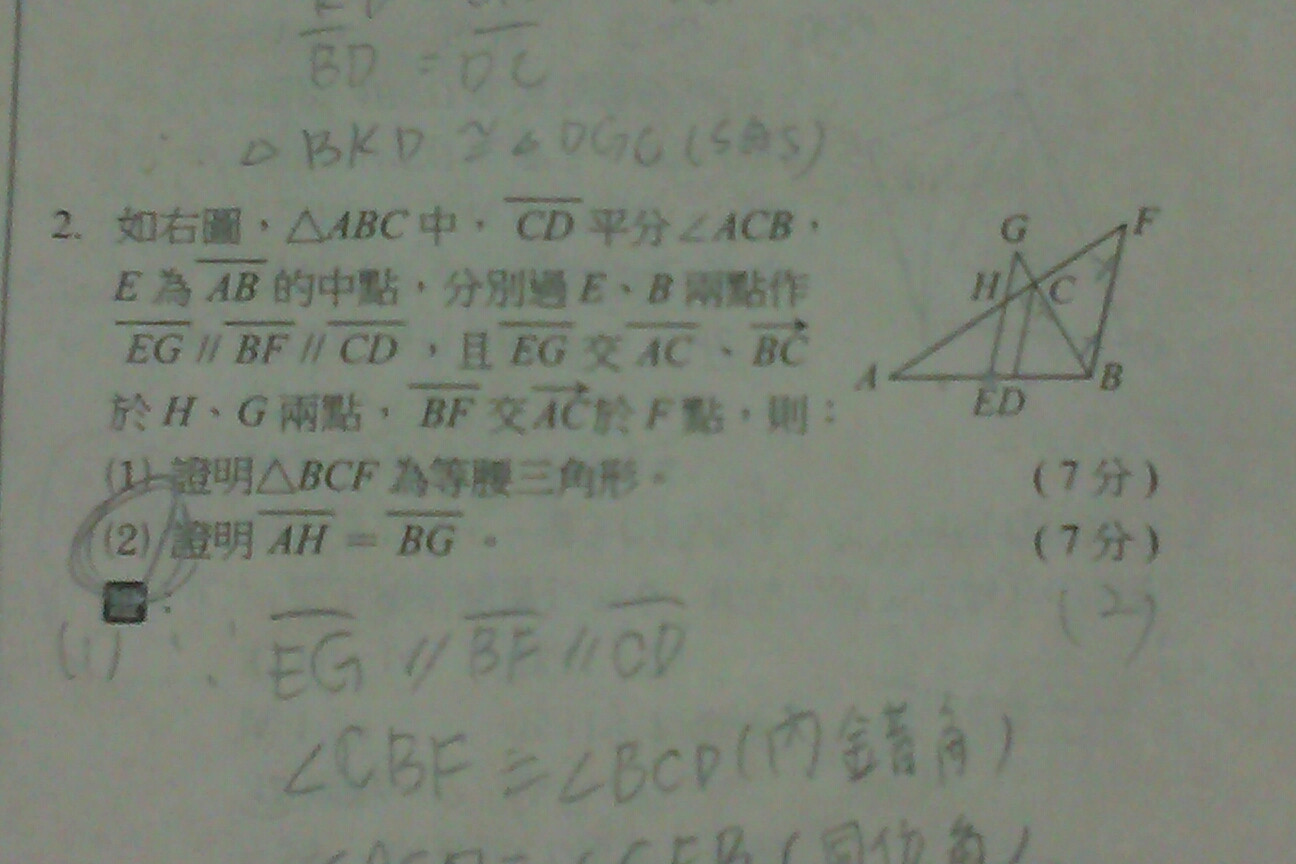 BD = DC
∴ △BKD ≅ △DGC (SAS)
2. 如右圖，△ABC 中，CD 平分∠ACB，
E 為 AB 的中點，分別過 E、B 兩點作
EG // BF // CD，且 EG 交 AC、BC
於 H、G 兩點，BF 交 AC 於 F 點，則：
(1) 證明△BCF 為等腰三角形。 (7 分)
(2) 證明 AH = BG。 (7 分)
G
F
H
C
A
ED
B
(2)
(1) ∵ EG // BF // CD
∠CBF = ∠BCD (內錯角)
(同位角)